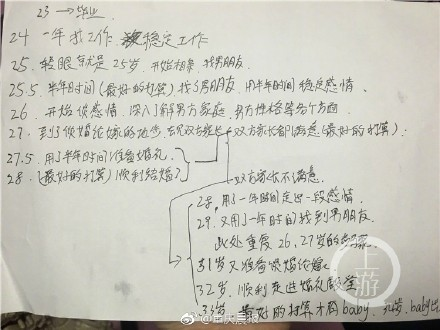 23 → 毕业
24 一年找工作 稳定工作
25. 转眼就是25岁, 开始相亲, 找男朋友.
25.5. 半年时间 (最好的打算) 找了男朋友, 用半年时间稳定感情.
26. 开始谈感情, 深入了解男方家庭, 男方性格等多个方面
27. 到了谈婚论嫁的地步, 双方家长都满意 (最好的打算).
27.5 用了半年时间准备婚礼.
28. (最好的打算) 顺利结婚
双方家长不满意.
28. 用了一年时间走出一段感情.
29. 又用了一年时间找到男朋友,
此处重复 26, 27岁的
31岁又准备谈婚论嫁
32岁, 顺利走进婚礼殿堂
33岁 最好的打算 才有baby. baby
上游